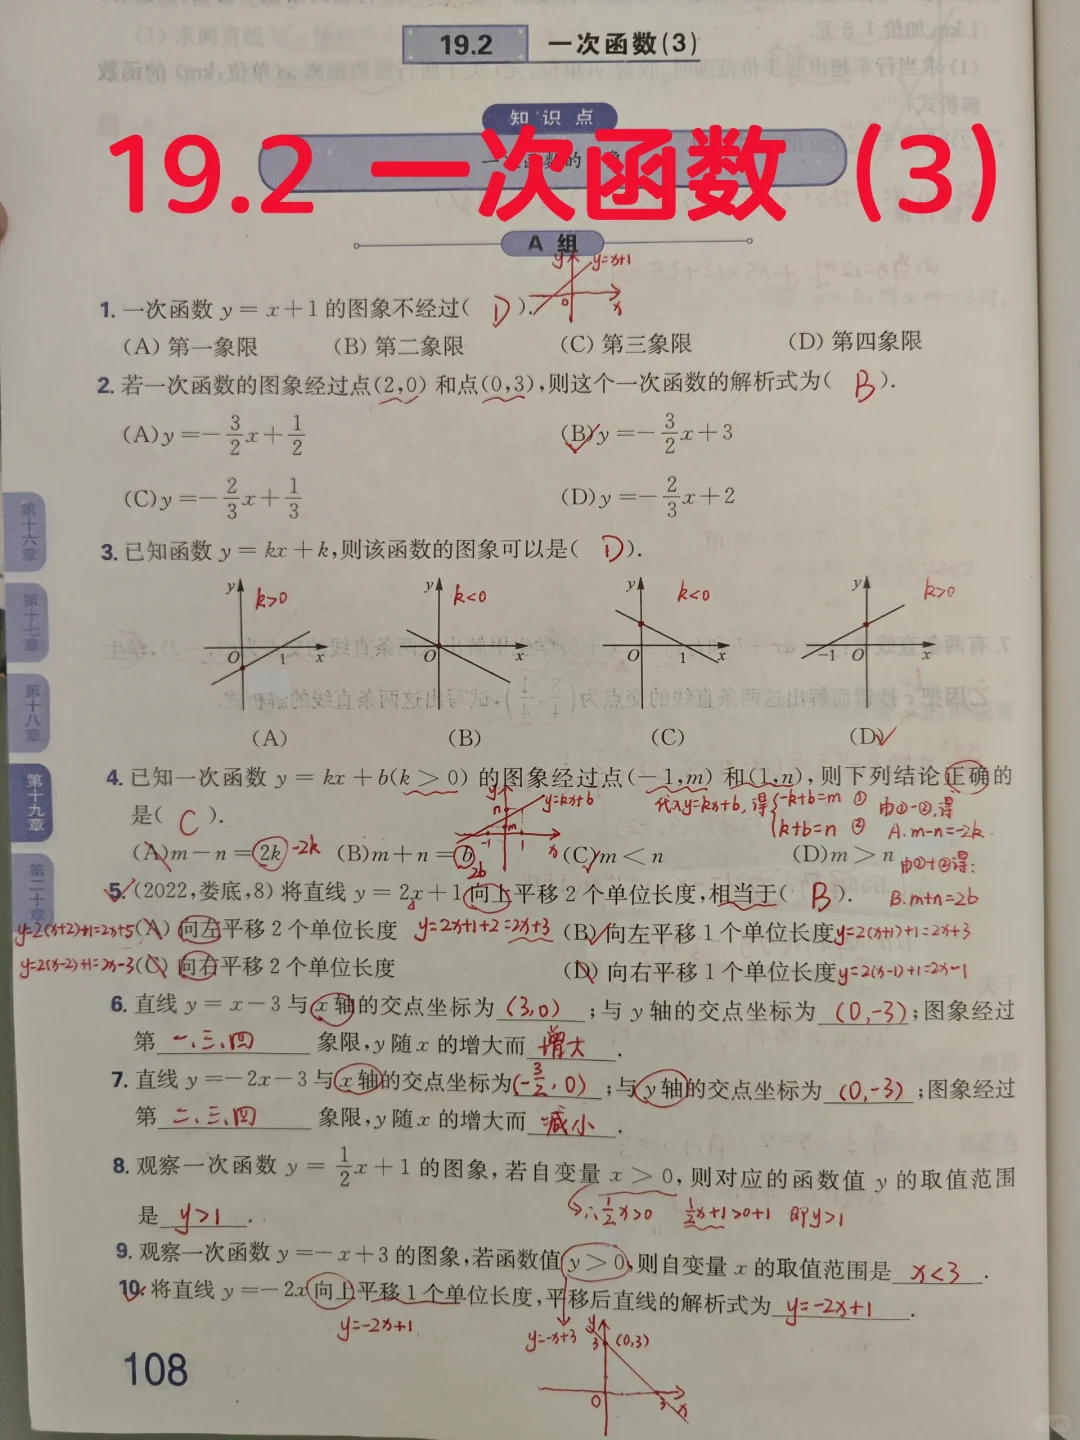 19.2 一次函数(3)
知识点
19.2 一次函数（3）
A 组
y y=x+1
0 x
1. 一次函数 y=x+1 的图象不经过( D ).
(A) 第一象限 (B) 第二象限 (C) 第三象限 (D) 第四象限
2. 若一次函数的图象经过点(2,0)和点(0,3),则这个一次函数的解析式为( B ).
(A) y=-3/2x+1/2 (B) y=-3/2x+3
(C) y=-2/3x+1/3 (D) y=-2/3x+2
3. 已知函数 y=kx+k,则该函数的图象可以是( D ).
y k>0 y k<0 y k<0 y k>0
O 1 x O x O 1 x -1 O x
(A) (B) (C) (D)
4. 已知一次函数 y=kx+b(k>0) 的图象经过点(-1,m)和(1,n),则下列结论正确的
是( C ).
y y=kx+b
n m -1 1 x
代入y=kx+b,得 {-k+b=m ①
k+b=n ②
由①-②,得
A. m-n=-2k.
(A) m-n=2k -2k (B) m+n=b 2b (C) m<n (D) m>n
由①+②得:
B. m+n=2b
5. (2022,娄底,8) 将直线 y=2x+1 向上平移 2 个单位长度,相当于( B ).
y=2(x+2)+1=2x+5 (A) 向左平移 2 个单位长度 y=2x+1+2=2x+3 (B) 向左平移 1 个单位长度 y=2(x+1)+1=2x+3
y=2(x-2)+1=2x-3 (C) 向右平移 2 个单位长度 (D) 向右平移 1 个单位长度 y=2(x-1)+1=2x-1
6. 直线 y=x-3 与 x 轴的交点坐标为 (3,0) ;与 y 轴的交点坐标为 (0,-3) ;图象经过
第 一、三、四 象限,y 随 x 的增大而 增大 .
7. 直线 y=-2x-3 与 x 轴的交点坐标为 (-3/2,0) ;与 y 轴的交点坐标为 (0,-3) ;图象经过
第 二、三、四 象限,y 随 x 的增大而 减小 .
8. 观察一次函数 y=1/2x+1 的图象,若自变量 x>0,则对应的函数值 y 的取值范围
是 y>1 .
∴1/2x>0 1/2x+1>0+1 即y>1
9. 观察一次函数 y=-x+3 的图象,若函数值 y>0,则自变量 x 的取值范围是 x<3 .
10. 将直线 y=-2x 向上平移 1 个单位长度,平移后直线的解析式为 y=-2x+1 .
y=-2x+1
y=-x+3 y 3 (0,3)
0 3 x
108
第十六章
第十七章
第十八章
第十九章
第二十章